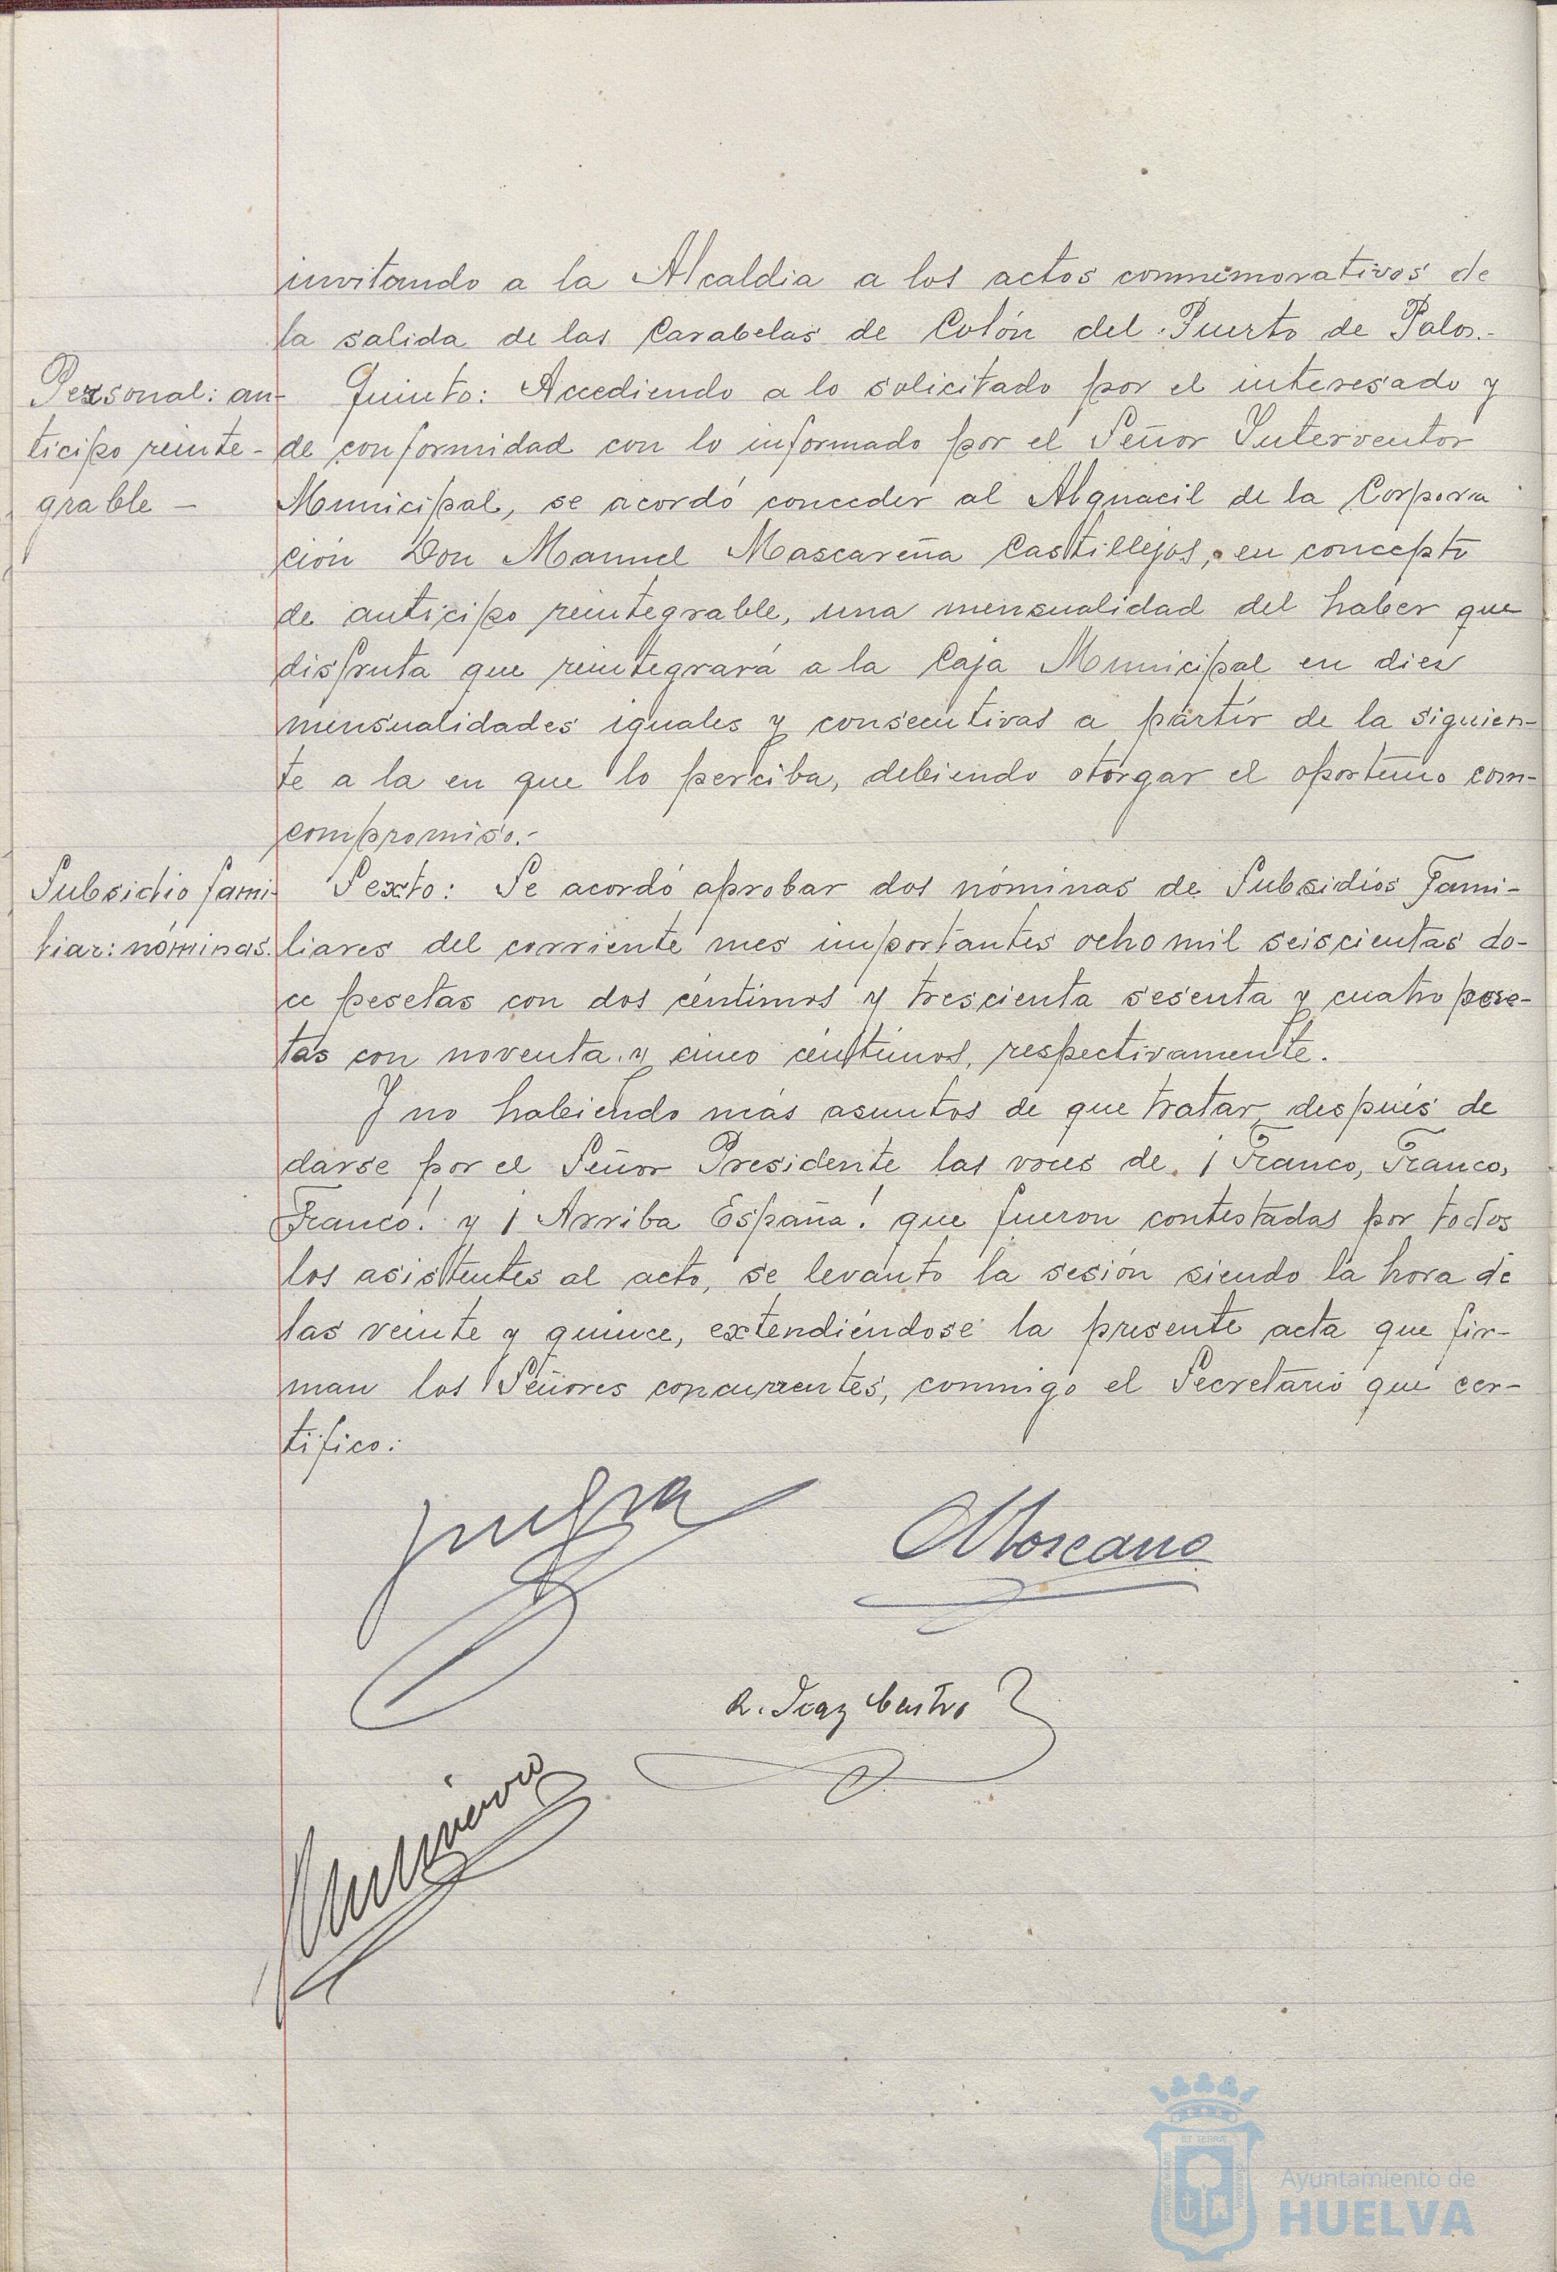 invitando a la Alcaldia a los actos conmemorativos de
la salida de las Carabelas de Colón del Puerto de Palos.-
Personal: an-
ticipo reinte-
grable -
Quinto: Accediendo a lo solicitado por el interesado y
de conformidad con lo informado por el Señor Interventor
Municipal, se acordó conceder al Alguacil de la Corpora
ción Don Manuel Mascareña Castillejos, en concepto
de anticipo reintegrable, una mensualidad del haber que
disfruta que reintegrará a la Caja Municipal en diez
mensualidades iguales y consecutivas a partir de la siguien-
te a la en que lo perciba, debiendo otorgar el oportuno com-
compromiso.-
Subsidio fami-
liar: nóminas.
Sexto: Se acordó aprobar dos nóminas de Subsidios Fami-
liares del corriente mes importantes ocho mil seiscientas do-
ce pesetas con dos céntimos y trescienta sesenta y cuatro pese-
tas con noventa y cinco céntimos, respectivamente.
Y no habiendo más asuntos de que tratar, después de
darse por el Señor Presidente las voces de ¡Franco, Franco,
Franco! y ¡Arriba España! que fueron contestadas por todos
los asistentes al acto, se levanto la sesión siendo la hora de
las veinte y quince, extendiéndose la presente acta que fir-
man los Señores concurrentes, conmigo el Secretario que cer-
tifico:
Moscano
R. Diaz Castro
Ayuntamiento de
HUELVA